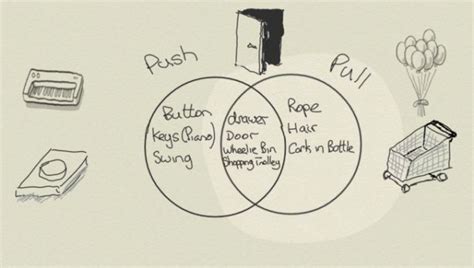 Push
Pull
Button
Keys (Piano)
Swing
drawer
Door
Wheelie Bin
Shopping Trolley
Rope
Hair
Cork in Bottle